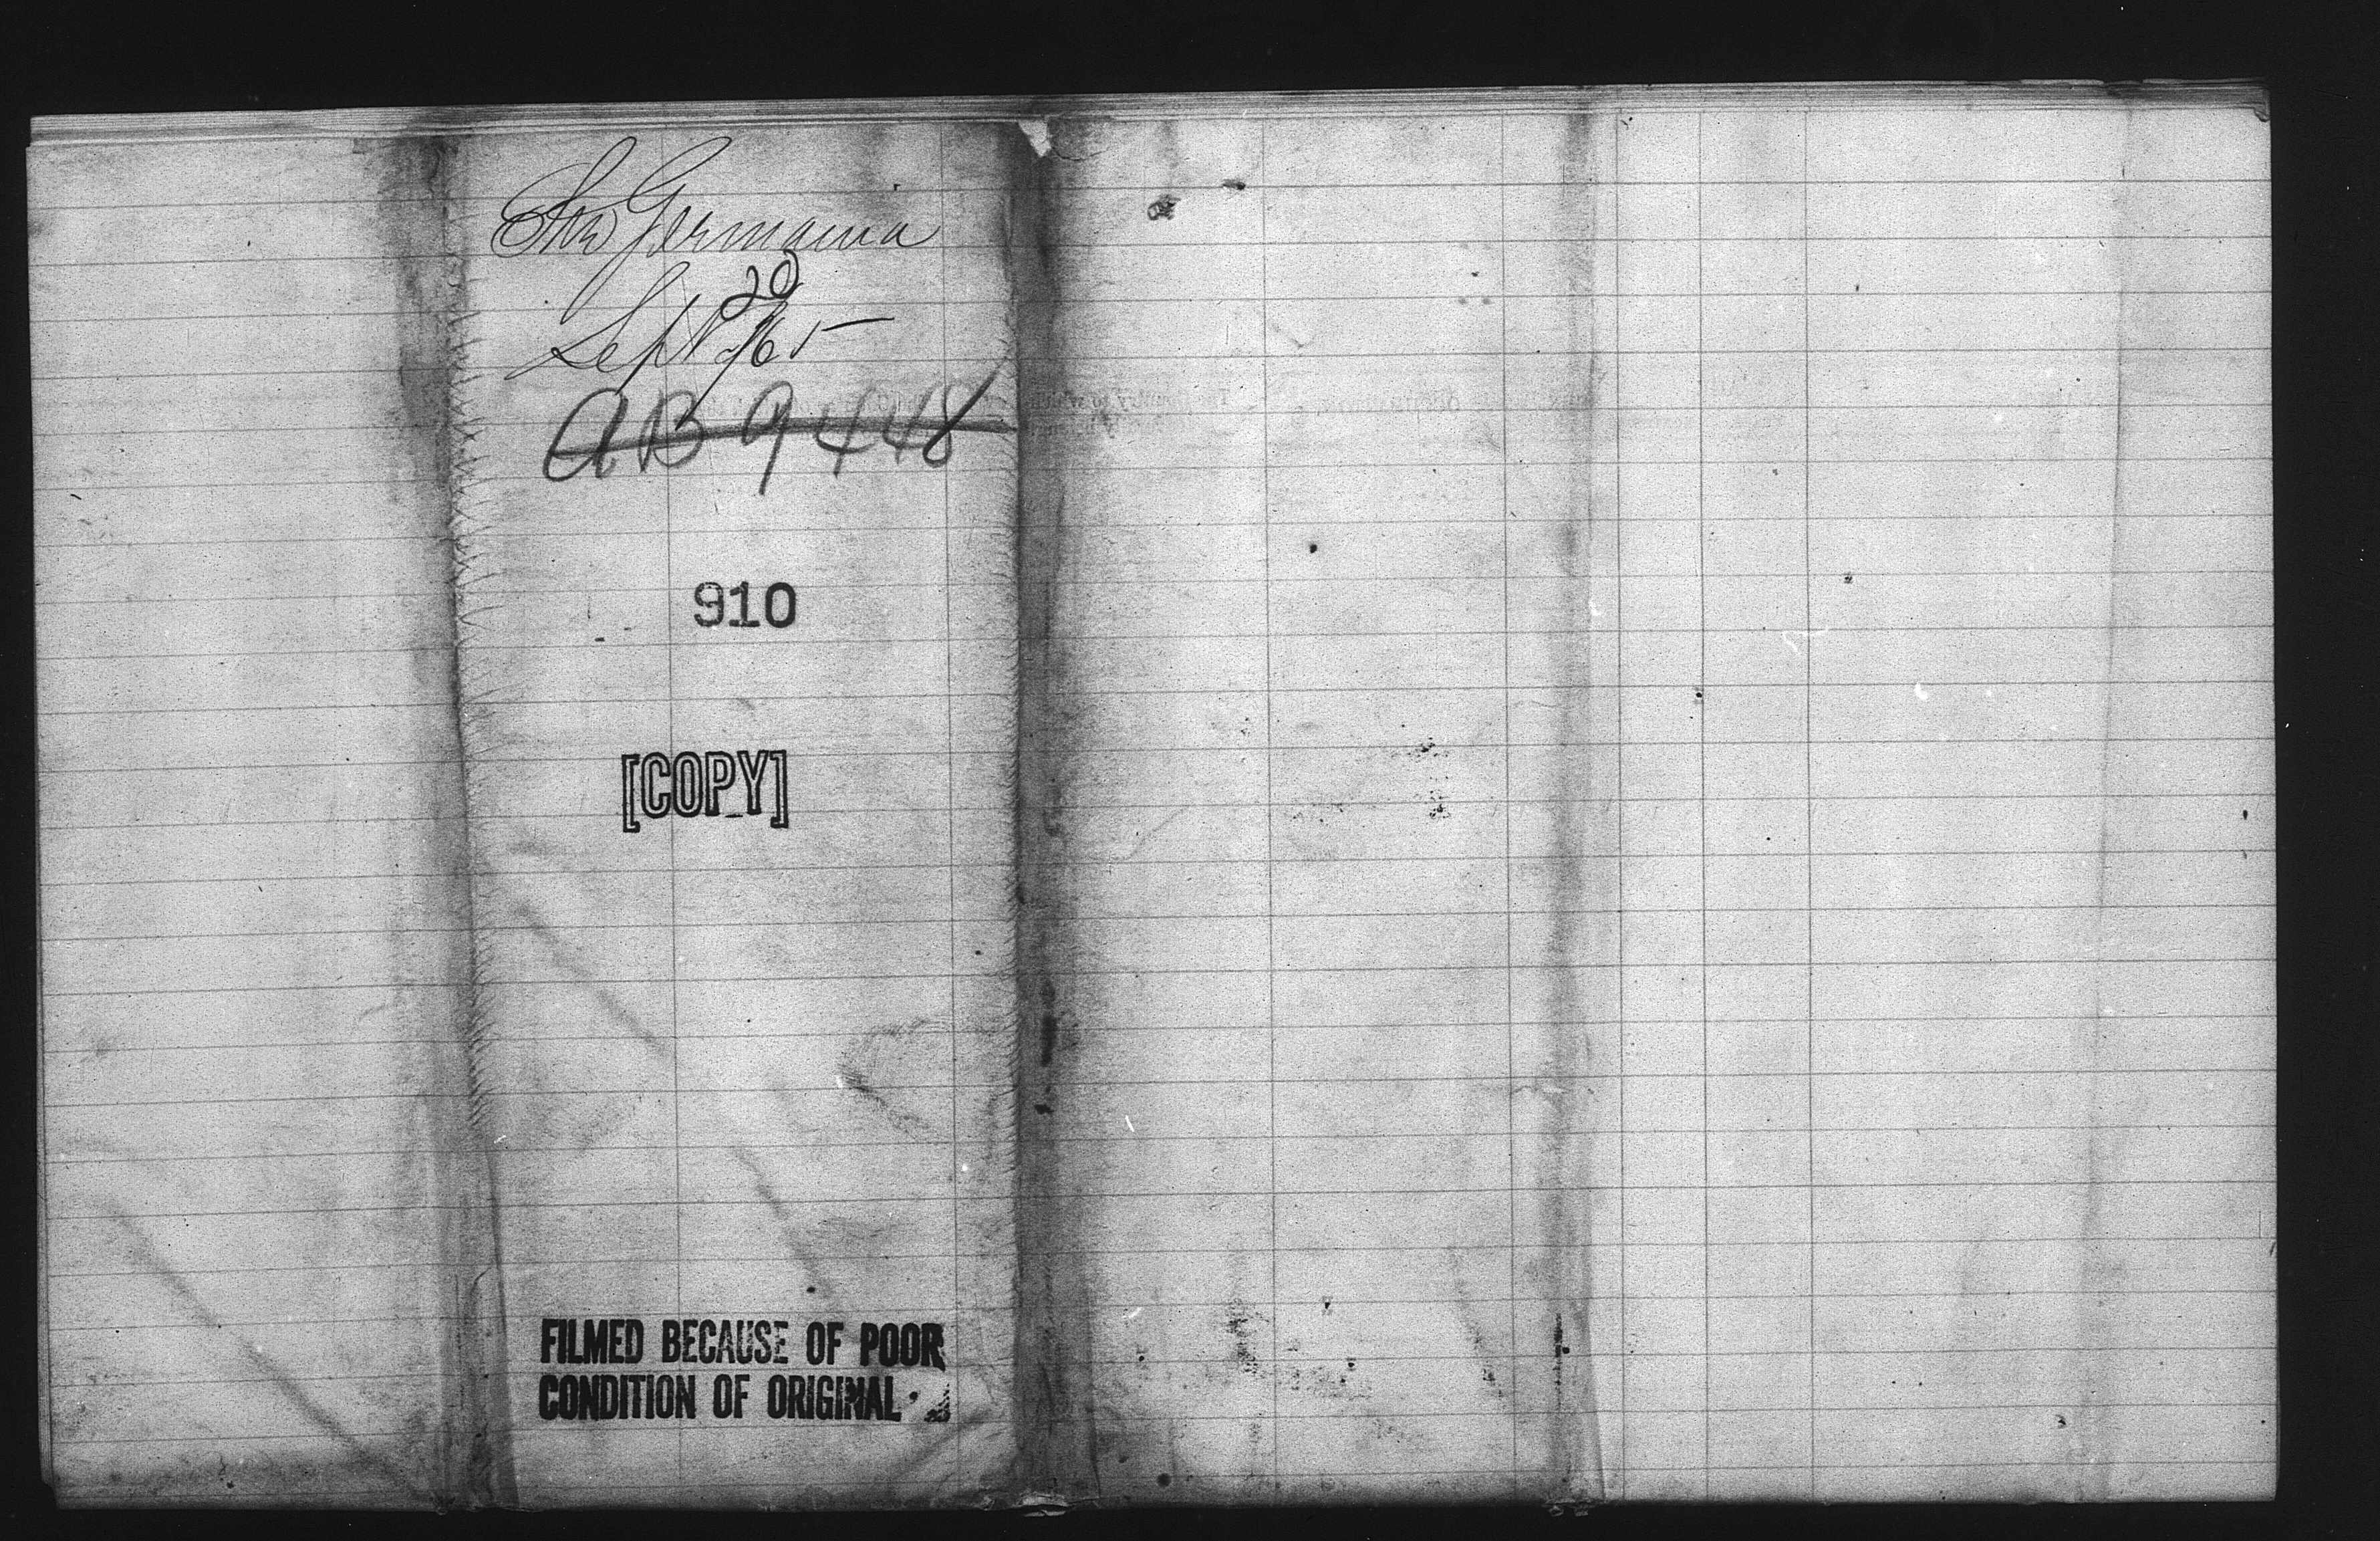 Str Germania
20
Sept 65
AB 9448
910
[COPY]
FILMED BECAUSE OF POOR
CONDITION OF ORIGINAL